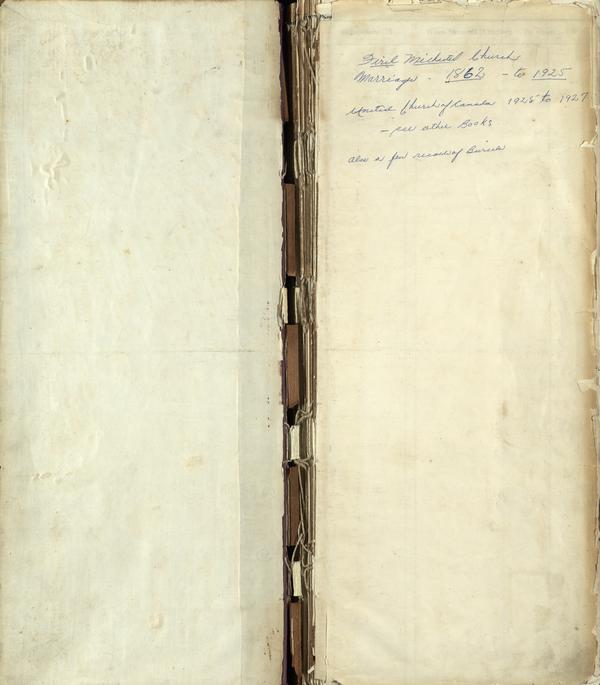 First Methodist Church
Marriages - 1862 - to 1925
United Church of Canada 1925 to 1927
- see other Books
also a few records of Burials